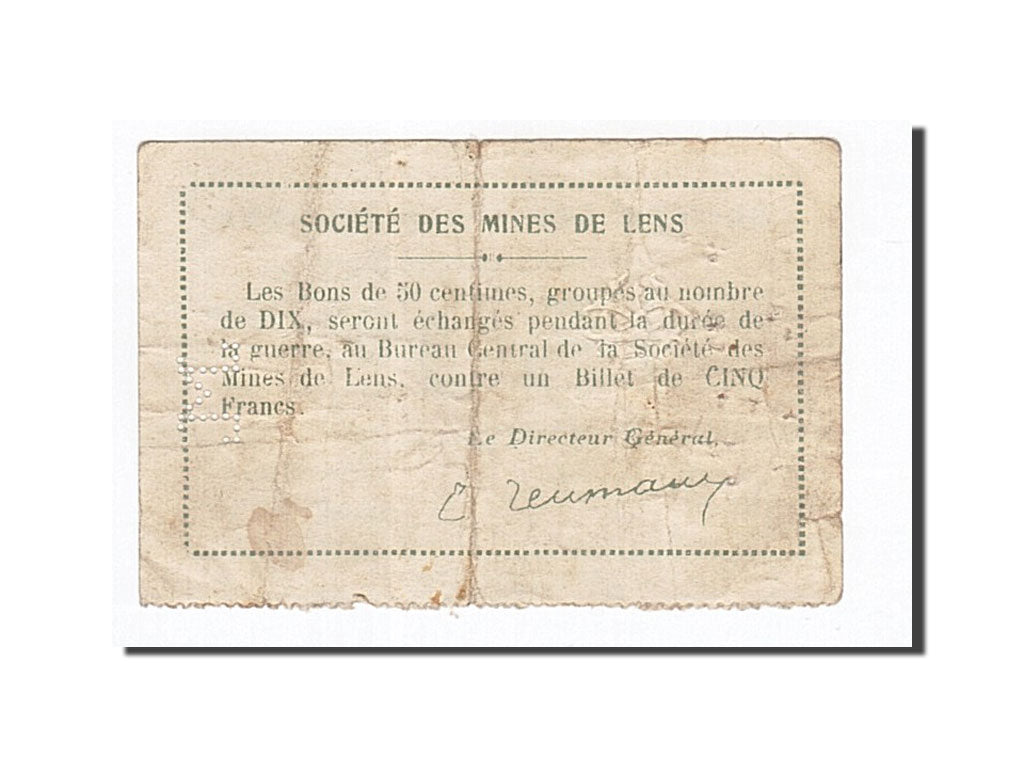 SOCIÉTÉ DES MINES DE LENS
Les Bons de 50 centimes, groupés au nombre
de DIX, seront échangés pendant la durée de
la guerre, au Bureau Central de la Société des
Mines de Lens, contre un Billet de CINQ
Francs.
Le Directeur Général,
E Reumaux